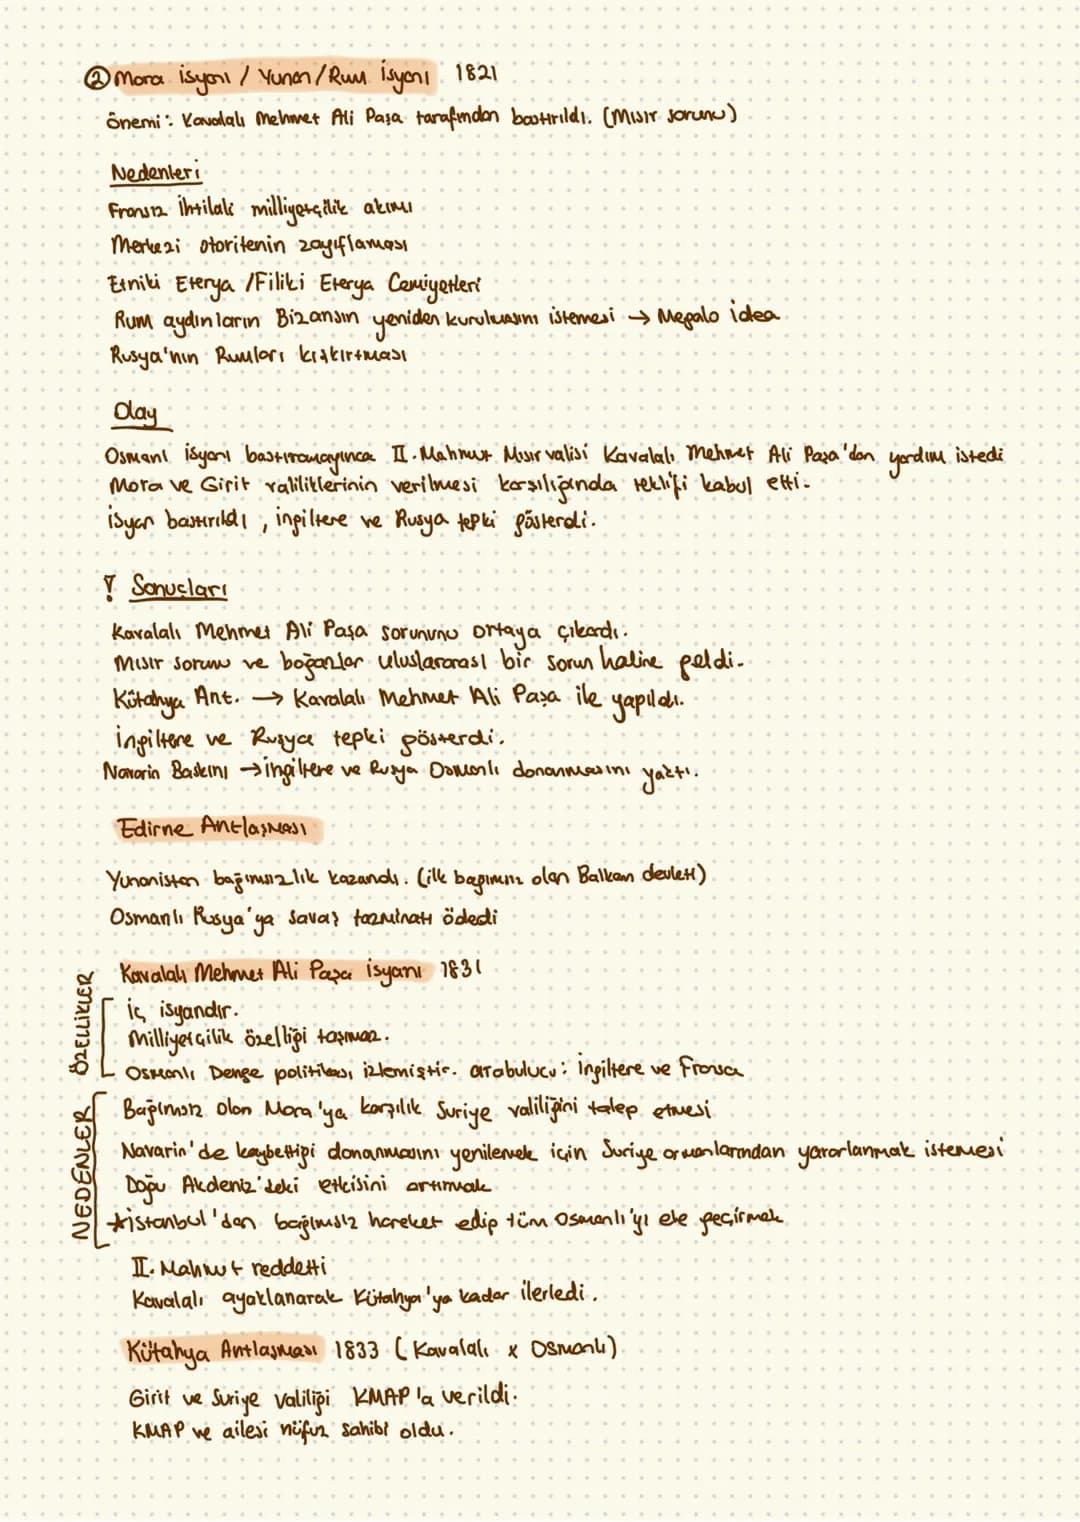 ② Mora isyanı / Yunan / Rum İsyanı 1821
Önemi: Kavalalı Mehmet Ali Paşa tarafından bastırıldı. (Mısır sorunu)
Nedenleri
Fransız İhtilali milliyetçilik akımı
Merkezi otoritenin zayıflaması
Etniki Eterya / Filiki Eterya Cemiyetleri
Rum aydınların Bizansın yeniden kurulmasını istemesi → Megalo idea
Rusya'nın Rumları kışkırtması
Olay
Osmanlı isyanı bastıramayınca II. Mahmut Mısır valisi Kavalalı Mehmet Ali Paşa'dan yardım istedi
Mora ve Girit valiliklerinin verilmesi karşılığında teklifi kabul etti.
isyan bastırıldı, ingiltere ve Rusya tepki gösterdi.
! Sonuçları
Kavalalı Mehmet Ali Paşa sorununu ortaya çıkardı.
Mısır sorunu ve boğazlar uluslararası bir sorun haline geldi.
Kütahya Ant. → Kavalalı Mehmet Ali Paşa ile yapıldı.
İngiltere ve Rusya tepki gösterdi.
Navarin Baskını → ingiltere ve Rusya Osmanlı donanmasını yaktı.
Edirne Antlaşması
Yunanistan bağımsızlık kazandı. (ilk bağımsız olan Balkan devleti)
Osmanlı Rusya'ya savaş tazminatı ödedi
Kavalalı Mehmet Ali Paşa isyanı 1831
ÖZELLİKLER
İç isyandır.
Milliyetçilik özelliği taşımaz.
Osmanlı Denge politikası izlemiştir. arabulucu: İngiltere ve Fransa
NEDENLER
Bağımsız olan Mora'ya karşılık Suriye valiliğini talep etmesi
Navarin'de kaybettiği donanmasını yenilemek için Suriye ormanlarından yararlanmak istemesi
Doğu Akdeniz'deki etkisini artırmak
★ istanbul'dan bağımsız hareket edip tüm Osmanlı'yı ele geçirmek
II. Mahmut reddetti
Kavalalı ayaklanarak Kütahya'ya kadar ilerledi.
Kütahya Antlaşması 1833 (Kavalalı x Osmanlı)
Girit ve Suriye valiliği KMAP'a verildi.
KMAP ve ailesi nüfuz sahibi oldu.